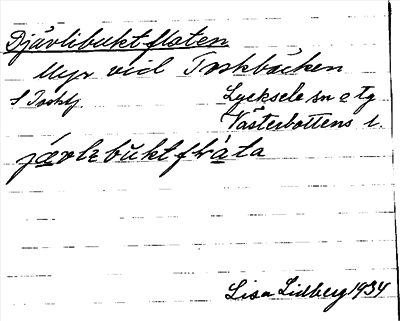 Djävlibukt-floten
Myr vid Taskbäcken
S Tasktj. Lycksele sn o tg
Västerbottens l.
jævlɩbuktflώta
Lisa Lidberg 1934